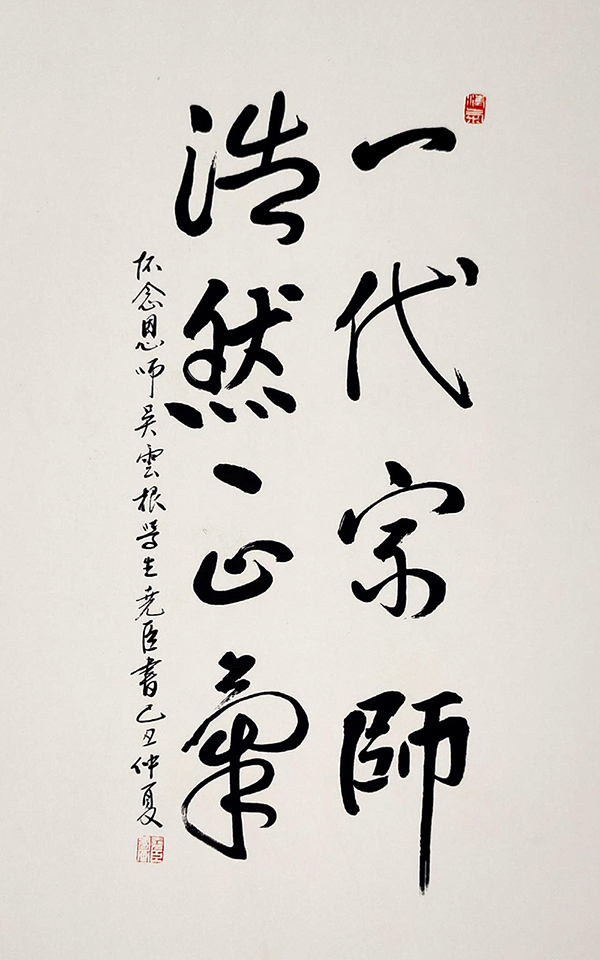 一代宗師
浩然正氣
怀念恩师吴雲根学生尧臣書己丑仲夏